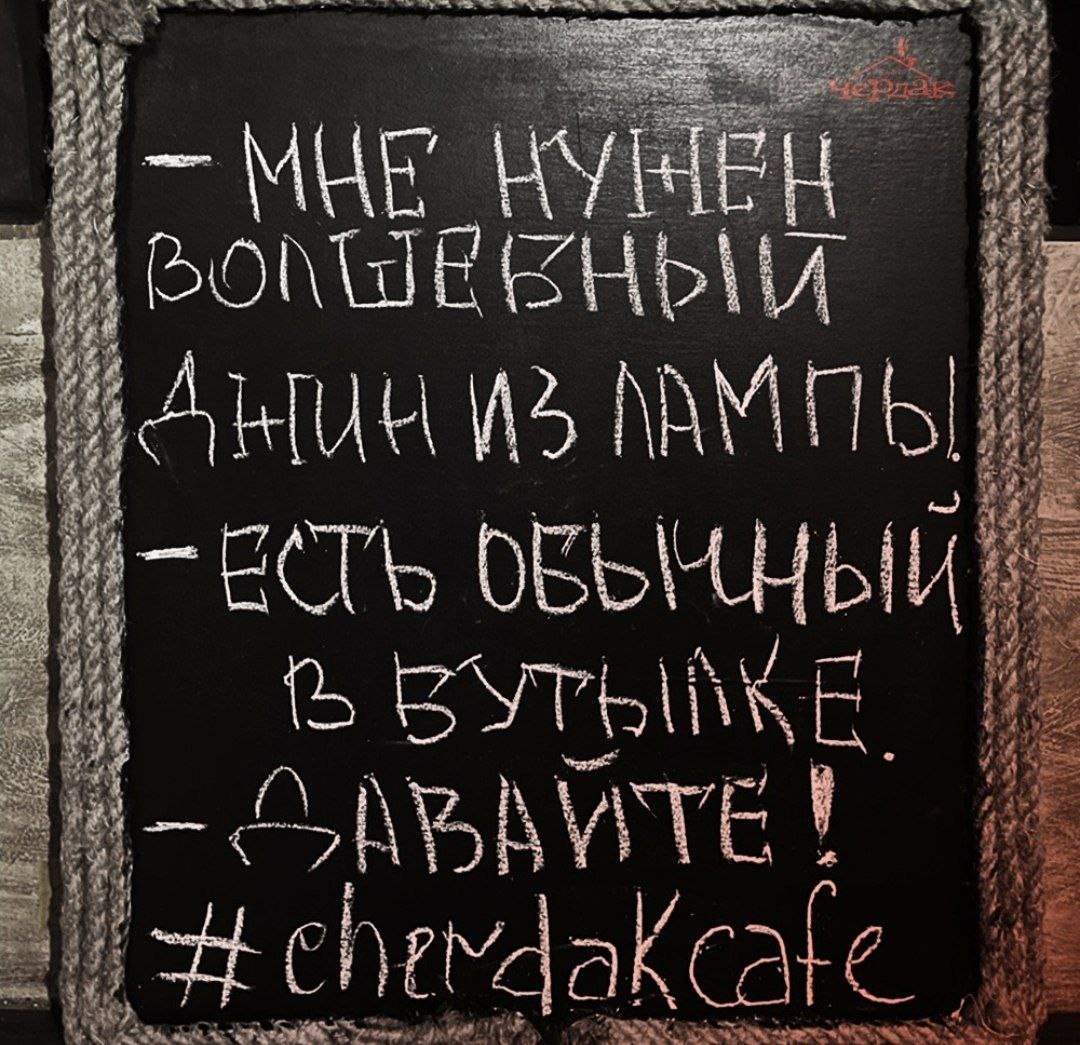 чердак
- МНЕ НУЖЕН
ВОЛШЕБНЫЙ
ДЖИН ИЗ ЛАМПЫ.
- ЕСТЬ ОБЫЧНЫЙ
В БУТЫЛКЕ.
- ДАВАЙТЕ!
#cherdakcafe